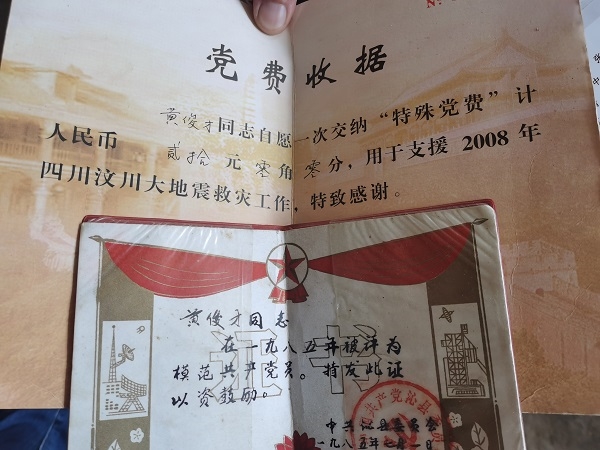 党费收据
黄俊才同志自愿一次交纳“特殊党费”计
人民币 贰拾 元 零 角 零 分，用于支援 2008 年
四川汶川大地震救灾工作，特致感谢。
黄俊才同志
在一九八五年被评为
模范共产党员。特发此证
以资鼓励。
中共沁县委员会
一九八五年七月一日